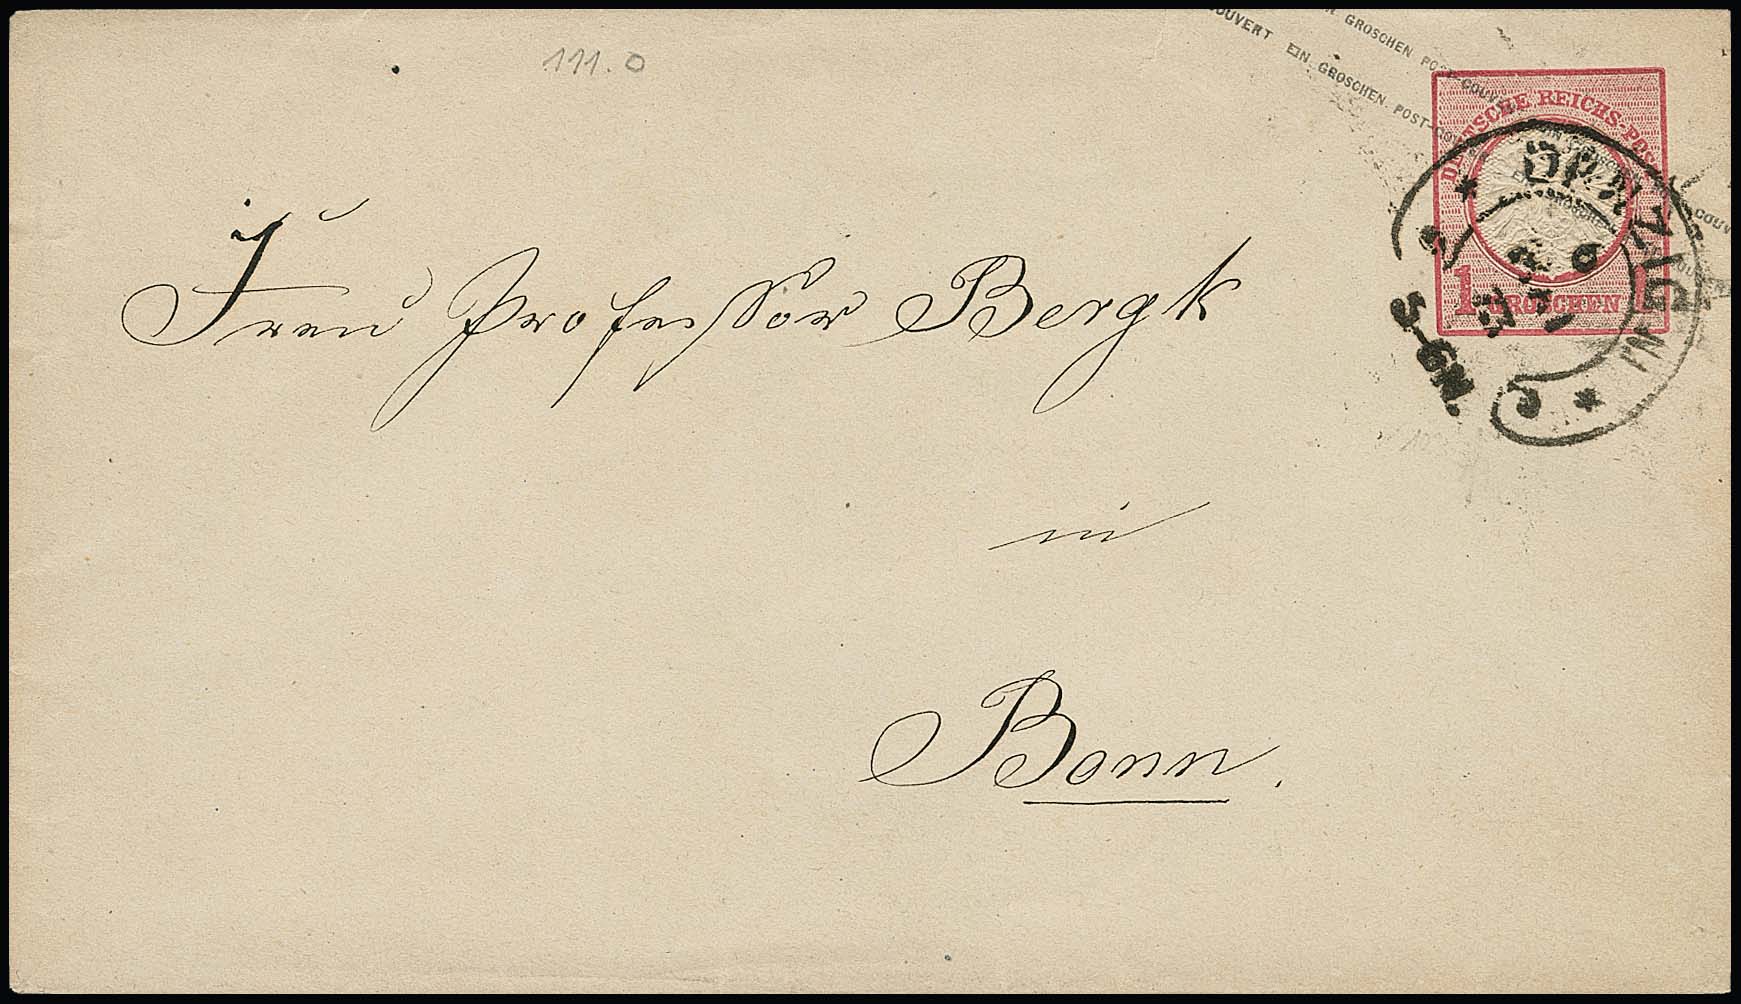 111.0
COUVERT EIN GROSCHEN POST-COUVERT
GROSCHEN POST-COUVERT
DEUTSCHE REICHS-POST
1 GROSCHEN 1
LEIPZIG
Frau Professor Bergk
in
Bonn.